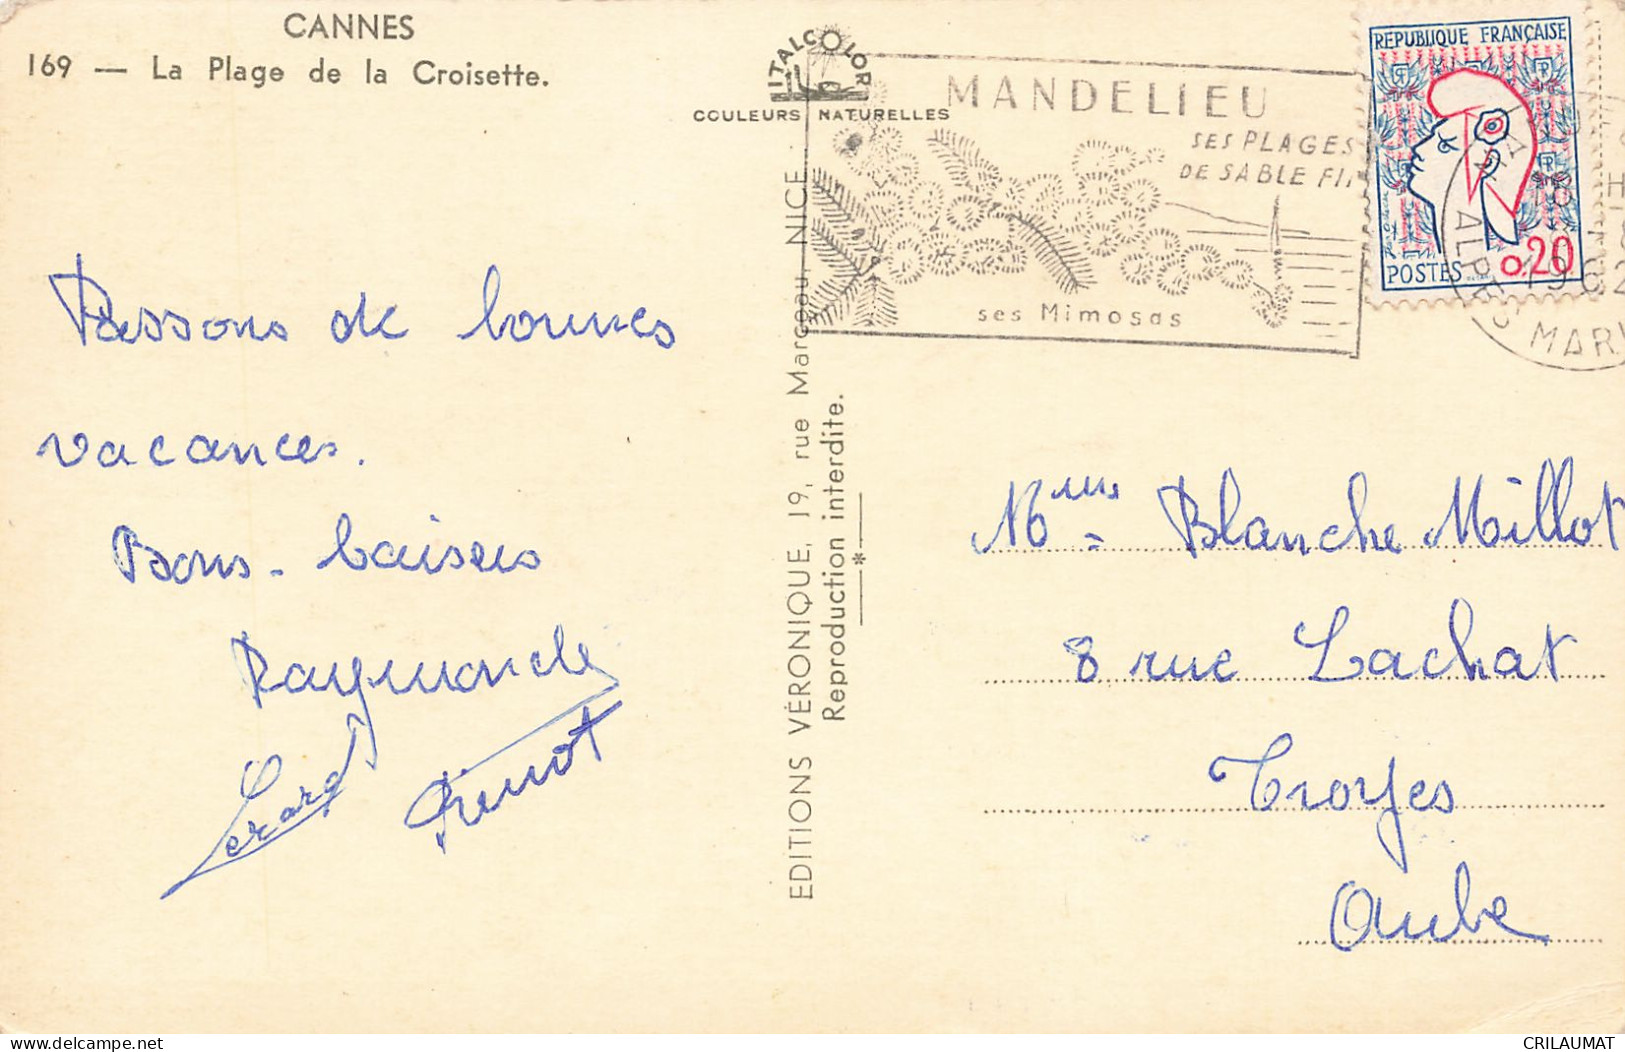 CANNES
169 — La Plage de la Croisette.
ITALCOLOR
COULEURS NATURELLES
MANDELIEU
SES PLAGES
DE SABLE
ses Mimosas
REPUBLIQUE FRANÇAISE
POSTES 0,20
ALPES MAR
1962
Passons de bonnes
vacances.
Bons baisers
Raymonde
Gerard
EDITIONS VÉRONIQUE, 19, rue Marceau, NICE
Reproduction interdite.
*
Mme Blanche Millot
8 rue Lachat
Troyes
Aube
delcampe.net
CRILAUMAT